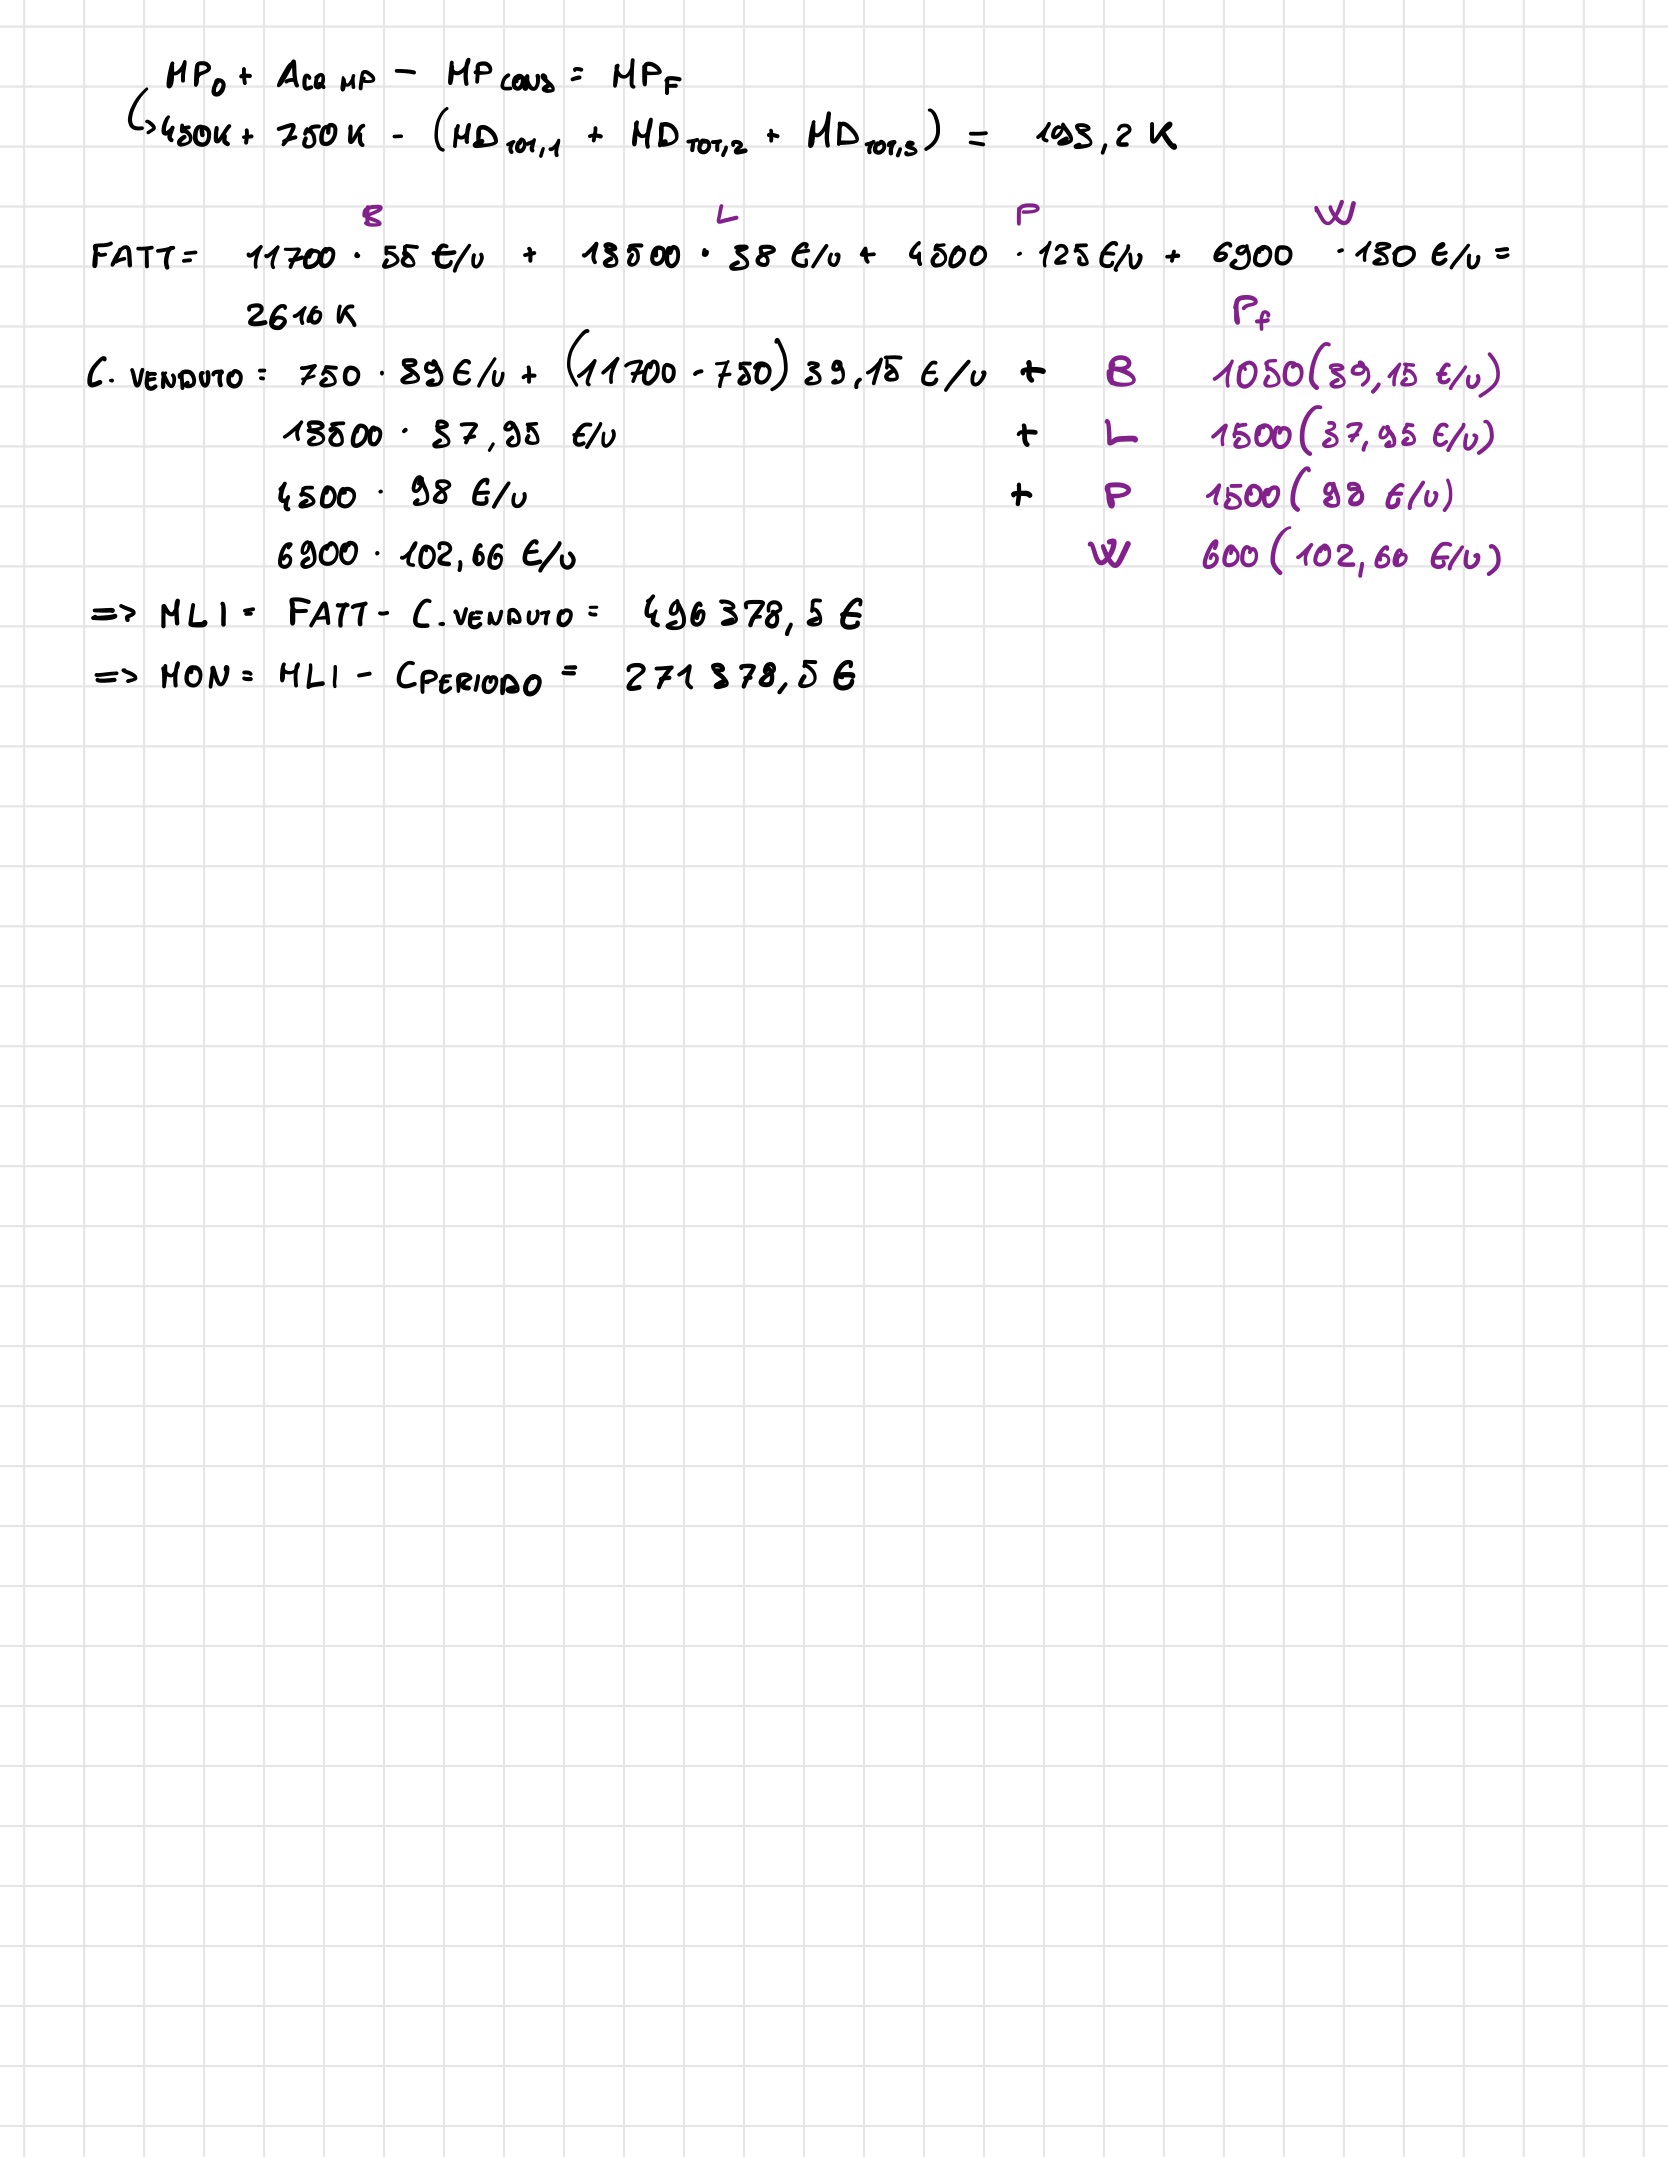 MP₀ + Acq MP − MP CONS = MP F
↳ 450K + 750K - (MD TOT,1 + MD TOT,2 + MD TOT,3) = 195,2 K
B L P W
FATT = 11700 · 55 €/u + 13500 · 38 €/u + 4500 · 125 €/u + 6900 · 130 €/u =
2616 K
Pf
C. VENDUTO = 750 · 39 €/u + (11700 - 750) 39,15 €/u + B 1050 (39,15 €/u)
13500 · 37,95 €/u + L 1500 (37,95 €/u)
4500 · 98 €/u + P 1500 (98 €/u)
6900 · 102,66 €/u W 600 (102,66 €/u)
=> MLI = FATT - C. VENDUTO = 496378,5 €
=> MON = MLI - C PERIODO = 271378,5 €